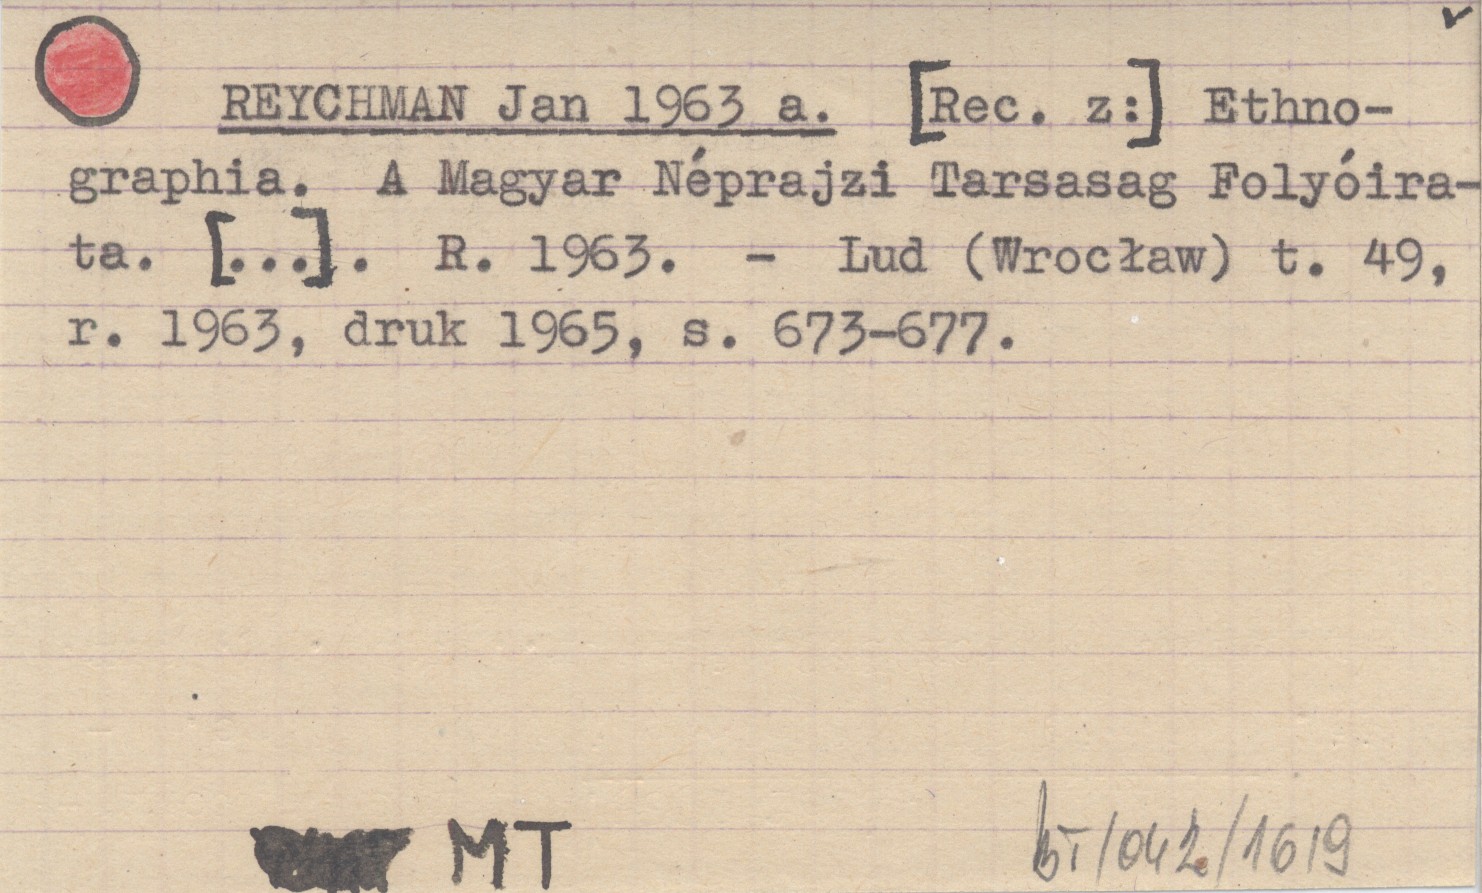 REYCHMAN Jan 1963 a. [Rec. z:] Ethno-
graphia. A Magyar Néprajzi Tarsasag Folyóira-
ta. [...]. R. 1963. - Lud (Wrocław) t. 49,
r. 1963, druk 1965, s. 673-677.
MT
bT/042/1619